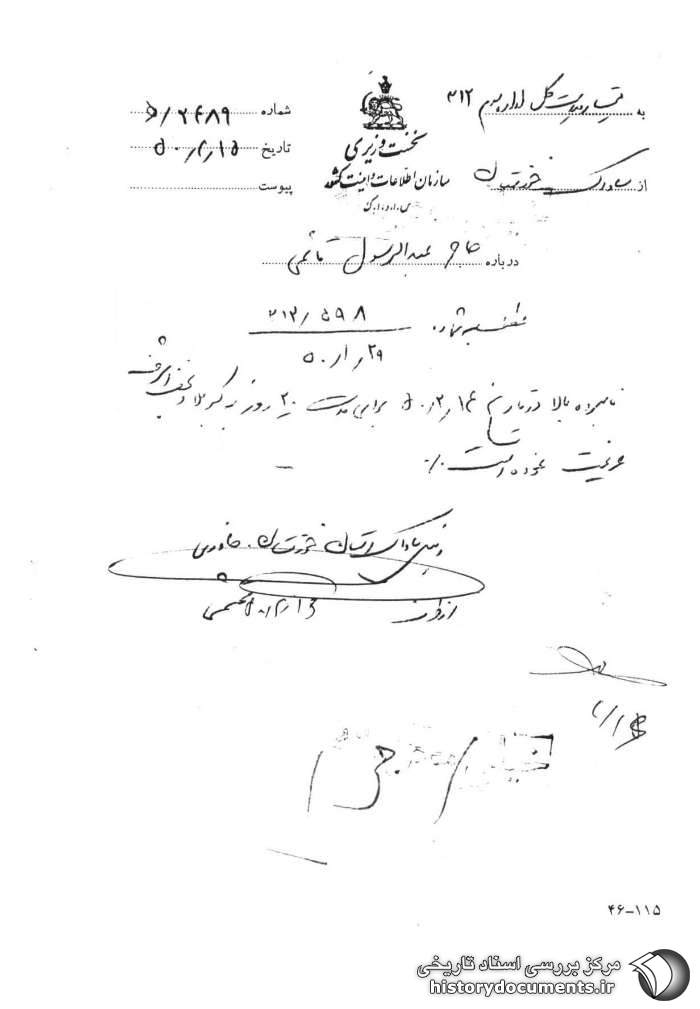 به ریاست کل اداره سوم ۳۱۲
شماره ۲۶۸۹/ه
نخست وزیری
تاریخ ۵۰/۲/۱۵
از ساواک خوزستان
سازمان اطلاعات و امنیت کشور
پیوست
س.ا.و.ا.ک
درباره حاج عبدالرسول قائمی
عطف به شماره ۳۱۲/۵۹۸
۵۰/۱/۲۹
نامبرده بالا در تاریخ ۵۰/۲/۱۴ برای مدت ۲۰ روز به کربلا و نجف اشرف
عزیمت نموده است ٪
رئیس ساواک استان خوزستان
از طرف
۴۶-۱۱۵
مرکز بررسی اسناد تاریخی
historydocuments.ir